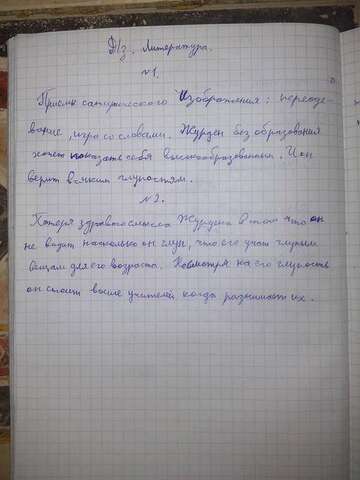 Д/з. Литература.
№1.
Приемы сатирического изображения: переоде-
вание, игра со словами. Журден без образования
хочет показать себя высокообразованным. И он
верит всяким глупостям.
№2.
Потеря здравого смысла Журдена в том что он
не видит насколько он глуп, что его учат глупым
вещам для его возраста. Несмотря на его глупость
он стоит выше учителей когда разнимает их.